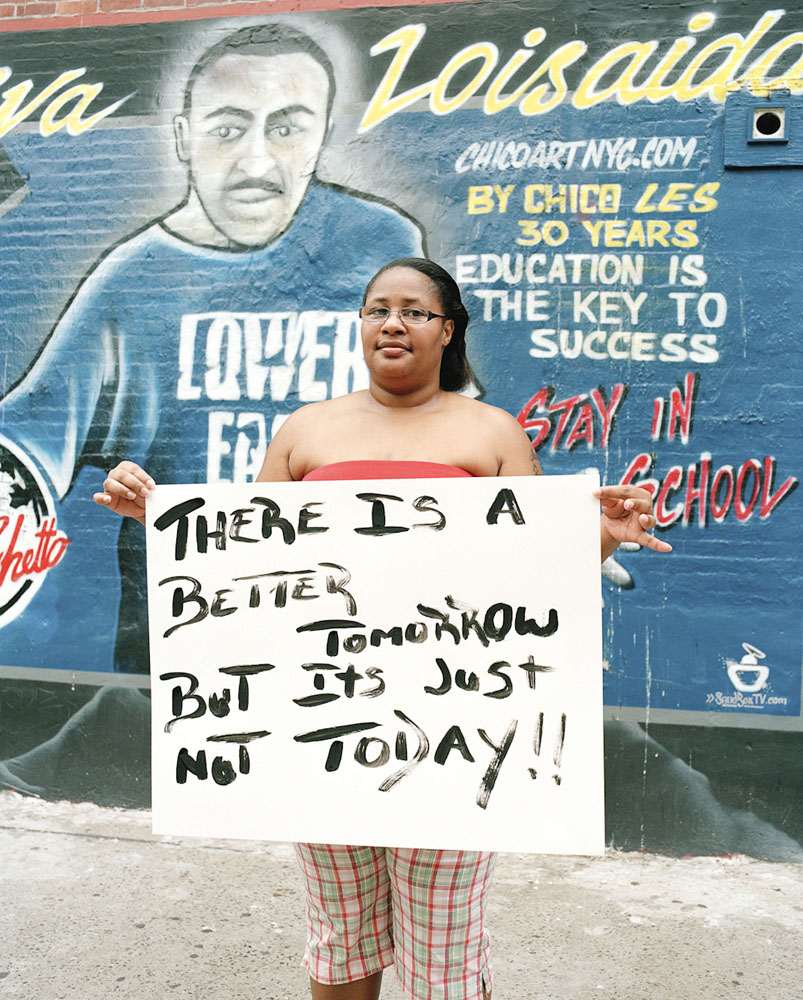 Loisaida
CHICOARTNYC.COM
BY CHICO LES
30 YEARS
EDUCATION IS
THE KEY TO
SUCCESS
LOWER
STAY IN
SCHOOL
Ghetto
THERE IS A
BETTER
TOMORROW
BUT ITS JUST
NOT TODAY!!
SandBoxTV.com